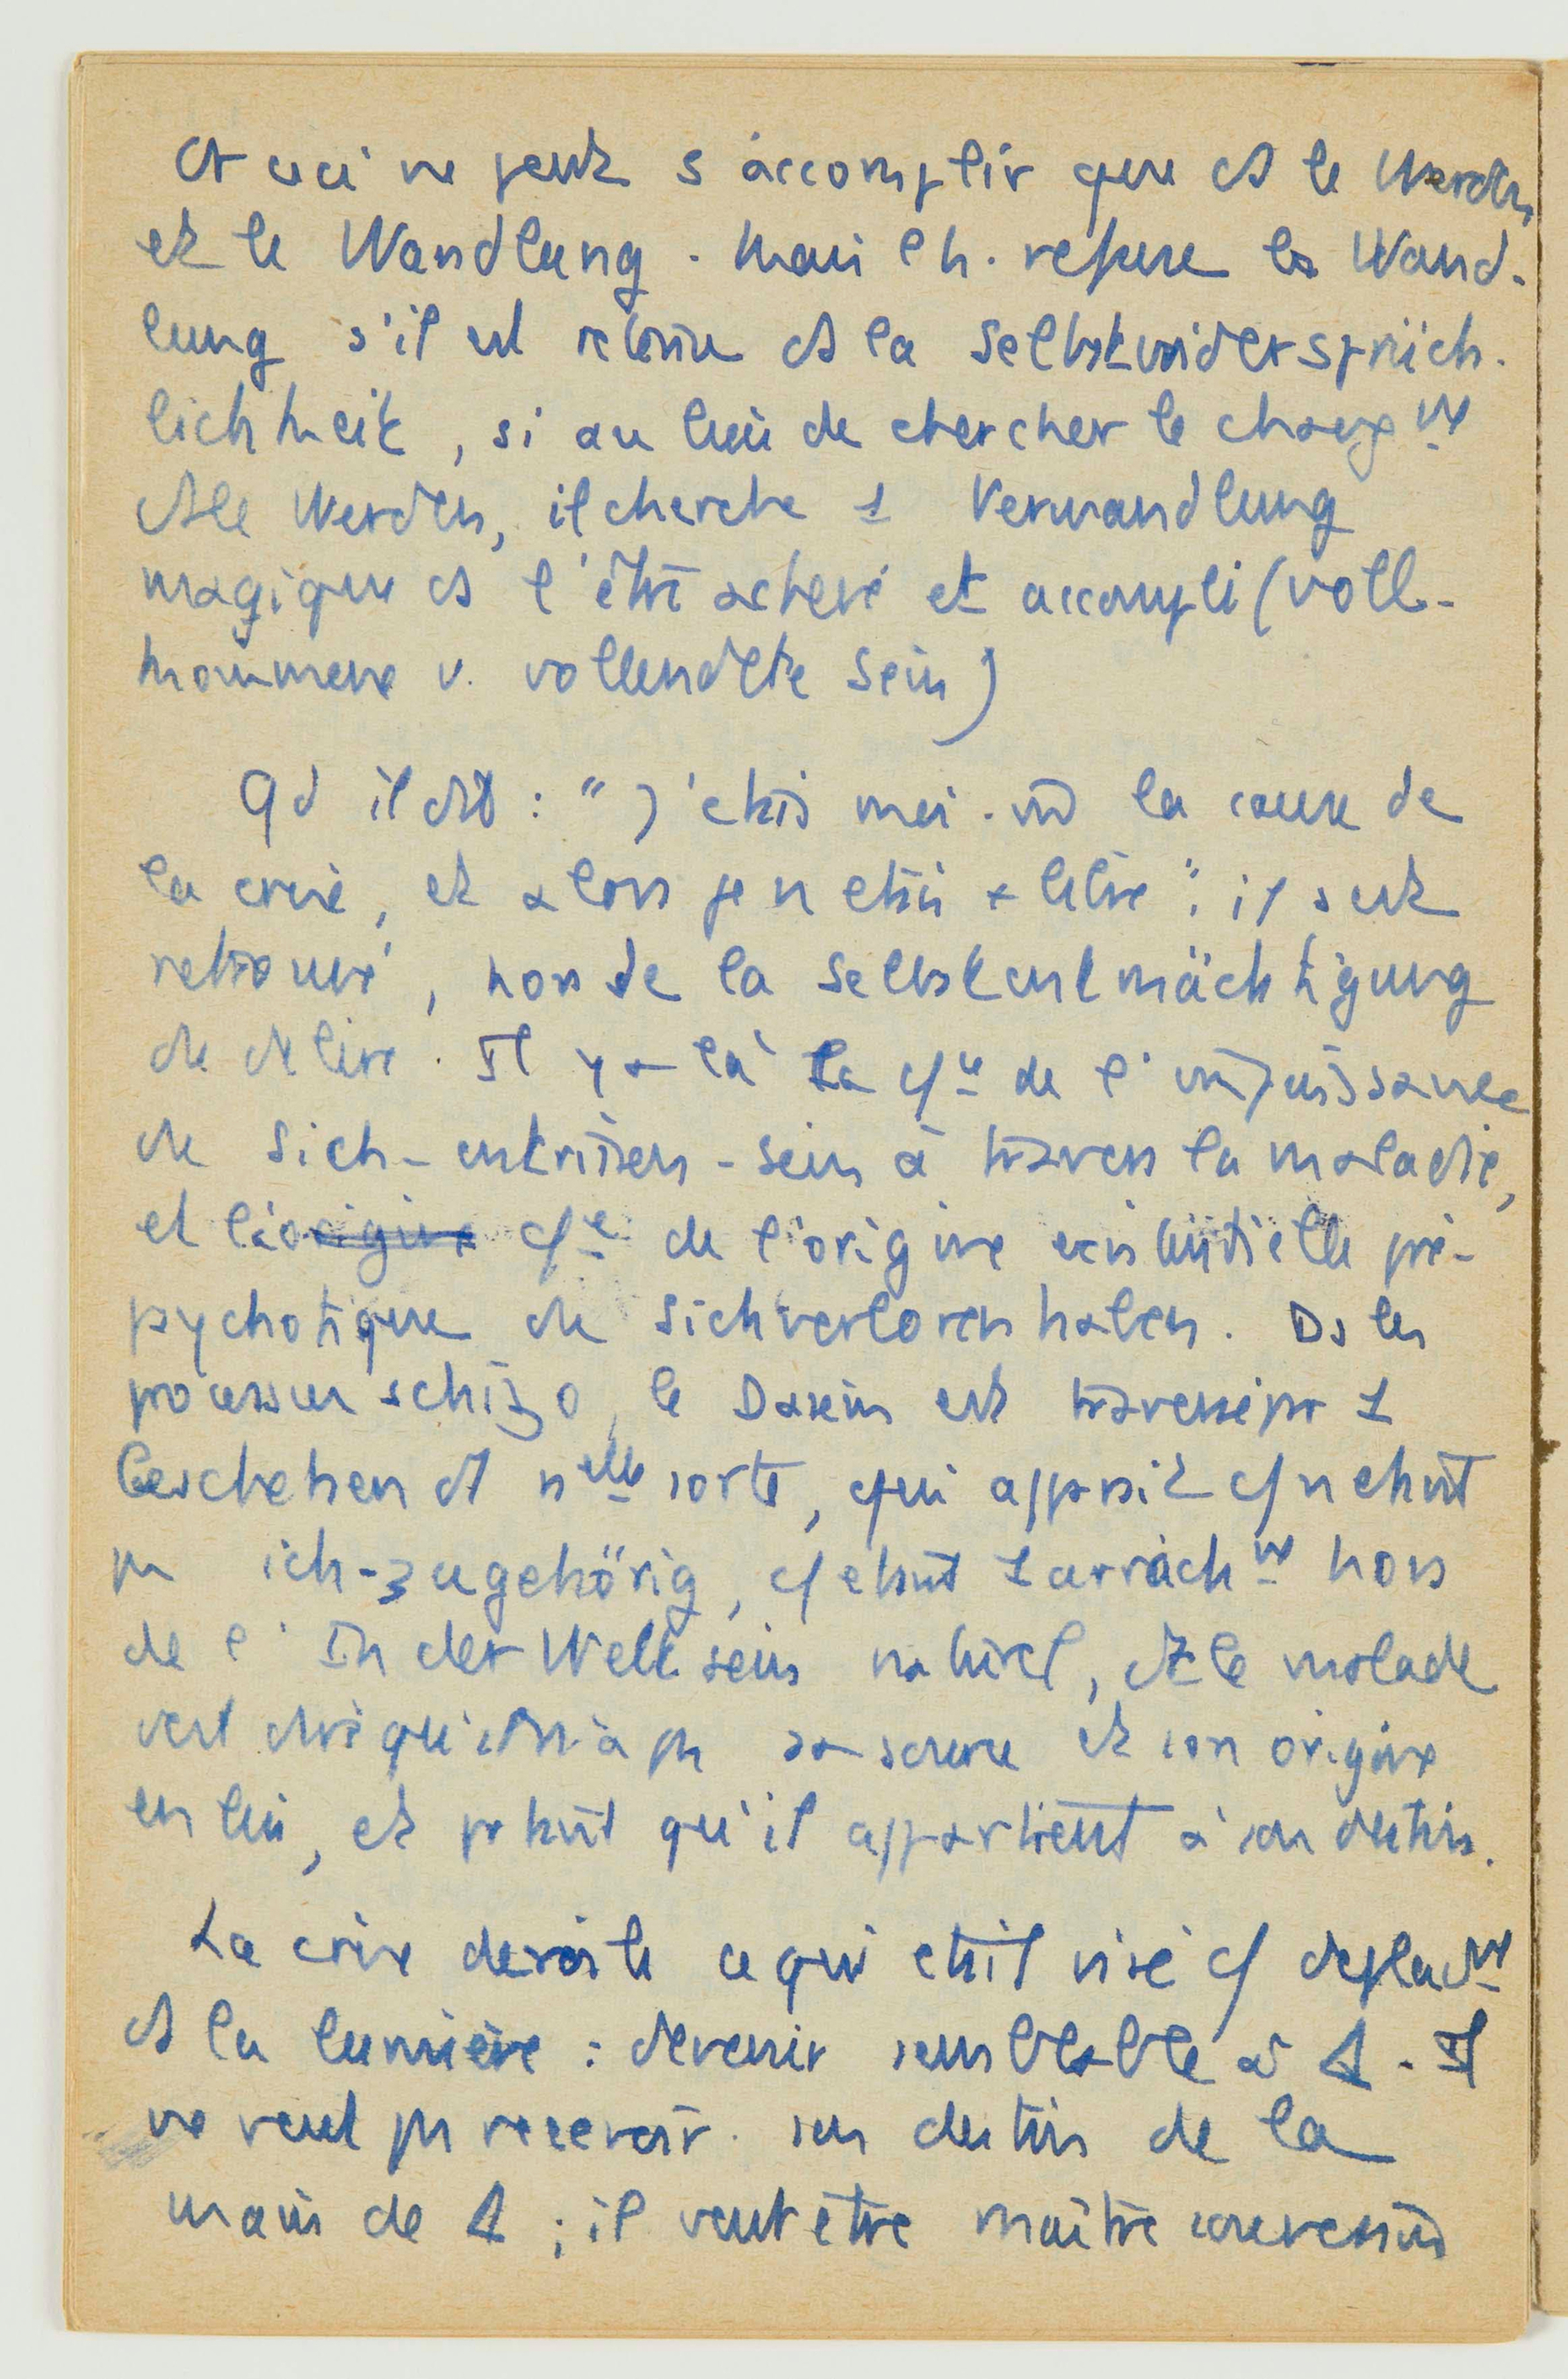 Et ceci ne peut s'accomplir que ds le Werden
et le Wandlung. Mais Ch. refuse la Wand-
lung s'il est retourné ds la Selbstwidersprüch-
lichkeit, si au lieu de chercher le changnt
ds le Werden, il cherche 1 Verwandlung
magique ds l'être achevé et accompli (voll-
kommene u. vollendete Sein)
Qd il dit : "J'étais moi-m la cause de
la crise, et alors je n'étais libre" : il s'est
retrouvé, hors de la Selbstentmächtigung
du délire. Il y a là la csce de l'impuissance
du Sich-entrissen-sein à travers la maladie,
et l'origine csce de l'origine existentielle pré-
psychotique du Sichverlorenhaben. Ds les
processus schizo, le Dasein est traversé par 1
Geschehen d'1 nelle sorte, qui apparaît c/ n'étant
pas ich-zugehörig, c/ étant 1 arrachnt hors
de l'In der Welt sein naturel, dt le malade
veut dire qu'il n'a pas sa source et son origine
en lui, et pourtant qu'il appartient à son destin.
La crise dévoile ce qui était visé c/ déplacnt
ds la lumière : devenir semblable à Δ. Il
ne veut pas recevoir son destin de la
main de Δ ; il veut être maître souverain